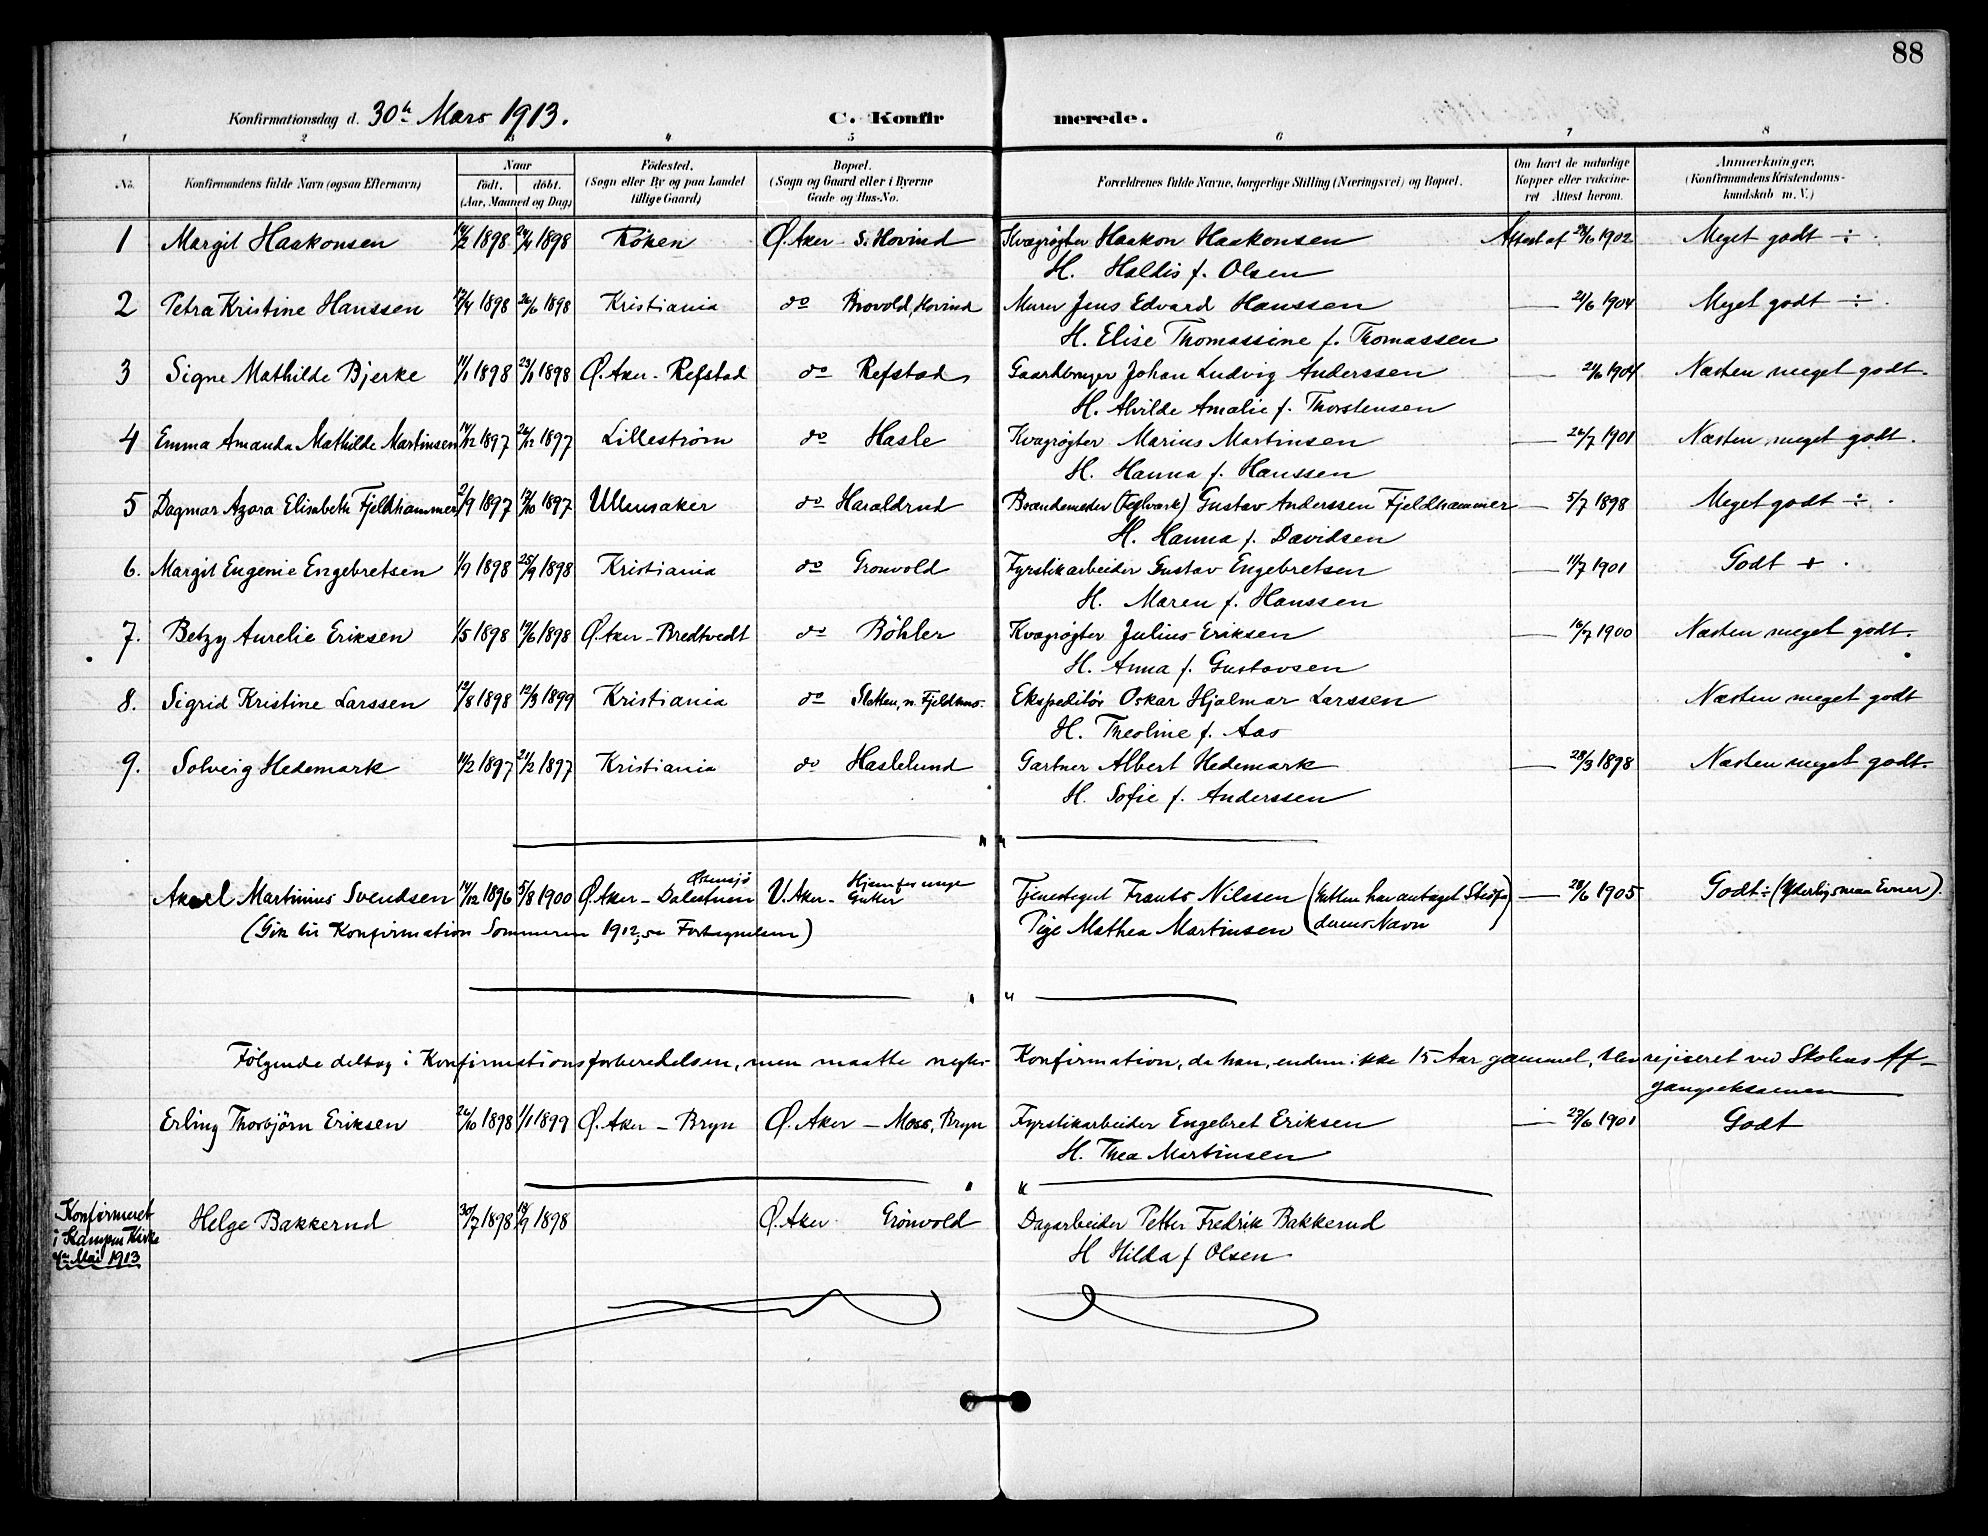 88
Konfirmationsdag d. 30te Mars 1913. C. Konfirmerede.
1 2 3 4 5 6 7 8
No. Konfirmandens fulde Navn (ogsaa Efternavn) Naar født. døbt. (Aar, Maaned og Dag) Fødested. (Sogn eller By og paa Landet tillige Gaard) Bopæl. (Sogn og Gaard eller i Byerne Gade og Hus-No. Forældrenes fulde Navne, borgerlige Stilling (Næringsvei) og Bopæl. Om havt de naturlige Kopper eller vaccineret Attest herom. Anmærkninger. (Konfirmandens Kristendomskundskab m. V.)
1 Margit Haakonsen 1898 24/4 1898 Röken Ø. Aker - S. Hovind Kvægrøgter Haakon Haakonsen Attest af 1902 Meget godt ÷.
H. Haldis f. Olsen
2 Petra Kristine Hanssen 1898 26/6 1898 Kristiania do Brovold, Hovind Murer Jens Edvard Hanssen — 21/6 1904 Meget godt ÷.
H. Elise Thomassine f. Thomassen
3 Signe Mathilde Bjerke 1898 1898 Ø. Aker - Refstad do Refstad Gaardbruger Johan Ludvig Anderssen — 21/6 1904 Næsten meget godt.
H. Alvilde Amalie f. Thorstensen
4 Emma Amanda Mathilde Martinsen 1897 26/12 1897 Lilleström do Hasle Kvægrøgter Marius Martinsen — 26/7 1901 Næsten meget godt.
H. Hanna f. Hanssen
5 Dagmar Azora Elisabeth Fjeldhammer 2/9 1897 17/10 1897 Ullensaker do Haraldrud Brændemester (Teglværk) Gustav Anderssen Fjeldhammer — 5/7 1898 Meget godt ÷.
H. Hanna f. Davidsen
6. Margit Eugenie Engebretsen 1898 25/9 1898 Kristiania do Grönvold Fyrstikarbeider Gustav Engebretsen — 11/7 1901 Godt +.
H. Maren f. Hanssen
7. Betzy Aurelie Eriksen 1/5 1898 19/6 1898 Ø. Aker - Bredtvedt do Böhler Kvægrøgter Julius Eriksen — 16/7 1900 Næsten meget godt.
H. Anna f. Gustavsen
8. Sigrid Kristine Larssen 12/8 1898 12/3 1899 Kristiania do Sletten, n. Fjeldhus. Ekspeditör Oskar Hjalmar Larssen Næsten meget godt
H. Theoline f. Aas
9. Solveig Hedemark 1897 1897 Kristiania do Haslelund Gartner Albert Hedemark — 28/3 1898 Næsten meget godt.
H. Sofie f. Anderssen
Aksel Martinius Svendsen 14/12 1896 5/8 1900 Ø. Aker - Östensjö Dalestuen V. Aker - Tjenestegut Frants Nilssen (Gutten har antaget Stedfaderens Navn) — 28/6 1905 Godt ÷ (Yderlig smaa Evner).
(Gik til Konfirmation Sommeren 1912, se Fortegnelsen) Pige Mathea Martinsen
Følgende deltog i Konfirmationsforberedelsen, men maatte negtes Konfirmation, da han, endnu ikke 15 Aar gammel, blev rejiceret ved Skolens Afgangseksamen
Erling Thorbjörn Eriksen 26/10 1898 1/1 1899 Ø. Aker - Bryn Ø. Aker - Moss, Bryn Fyrstikarbeider Engebret Eriksen — 27/6 1901 Godt
H. Thea Martinsen
Konfirmeret i Kampens Kirke 4de Mai 1913 Helge Bakkerud 30/7 1898 18/9 1898 Ø. Aker Grönvold Dagarbeider Petter Fredrik Bakkerud
H Hilda f Olsen